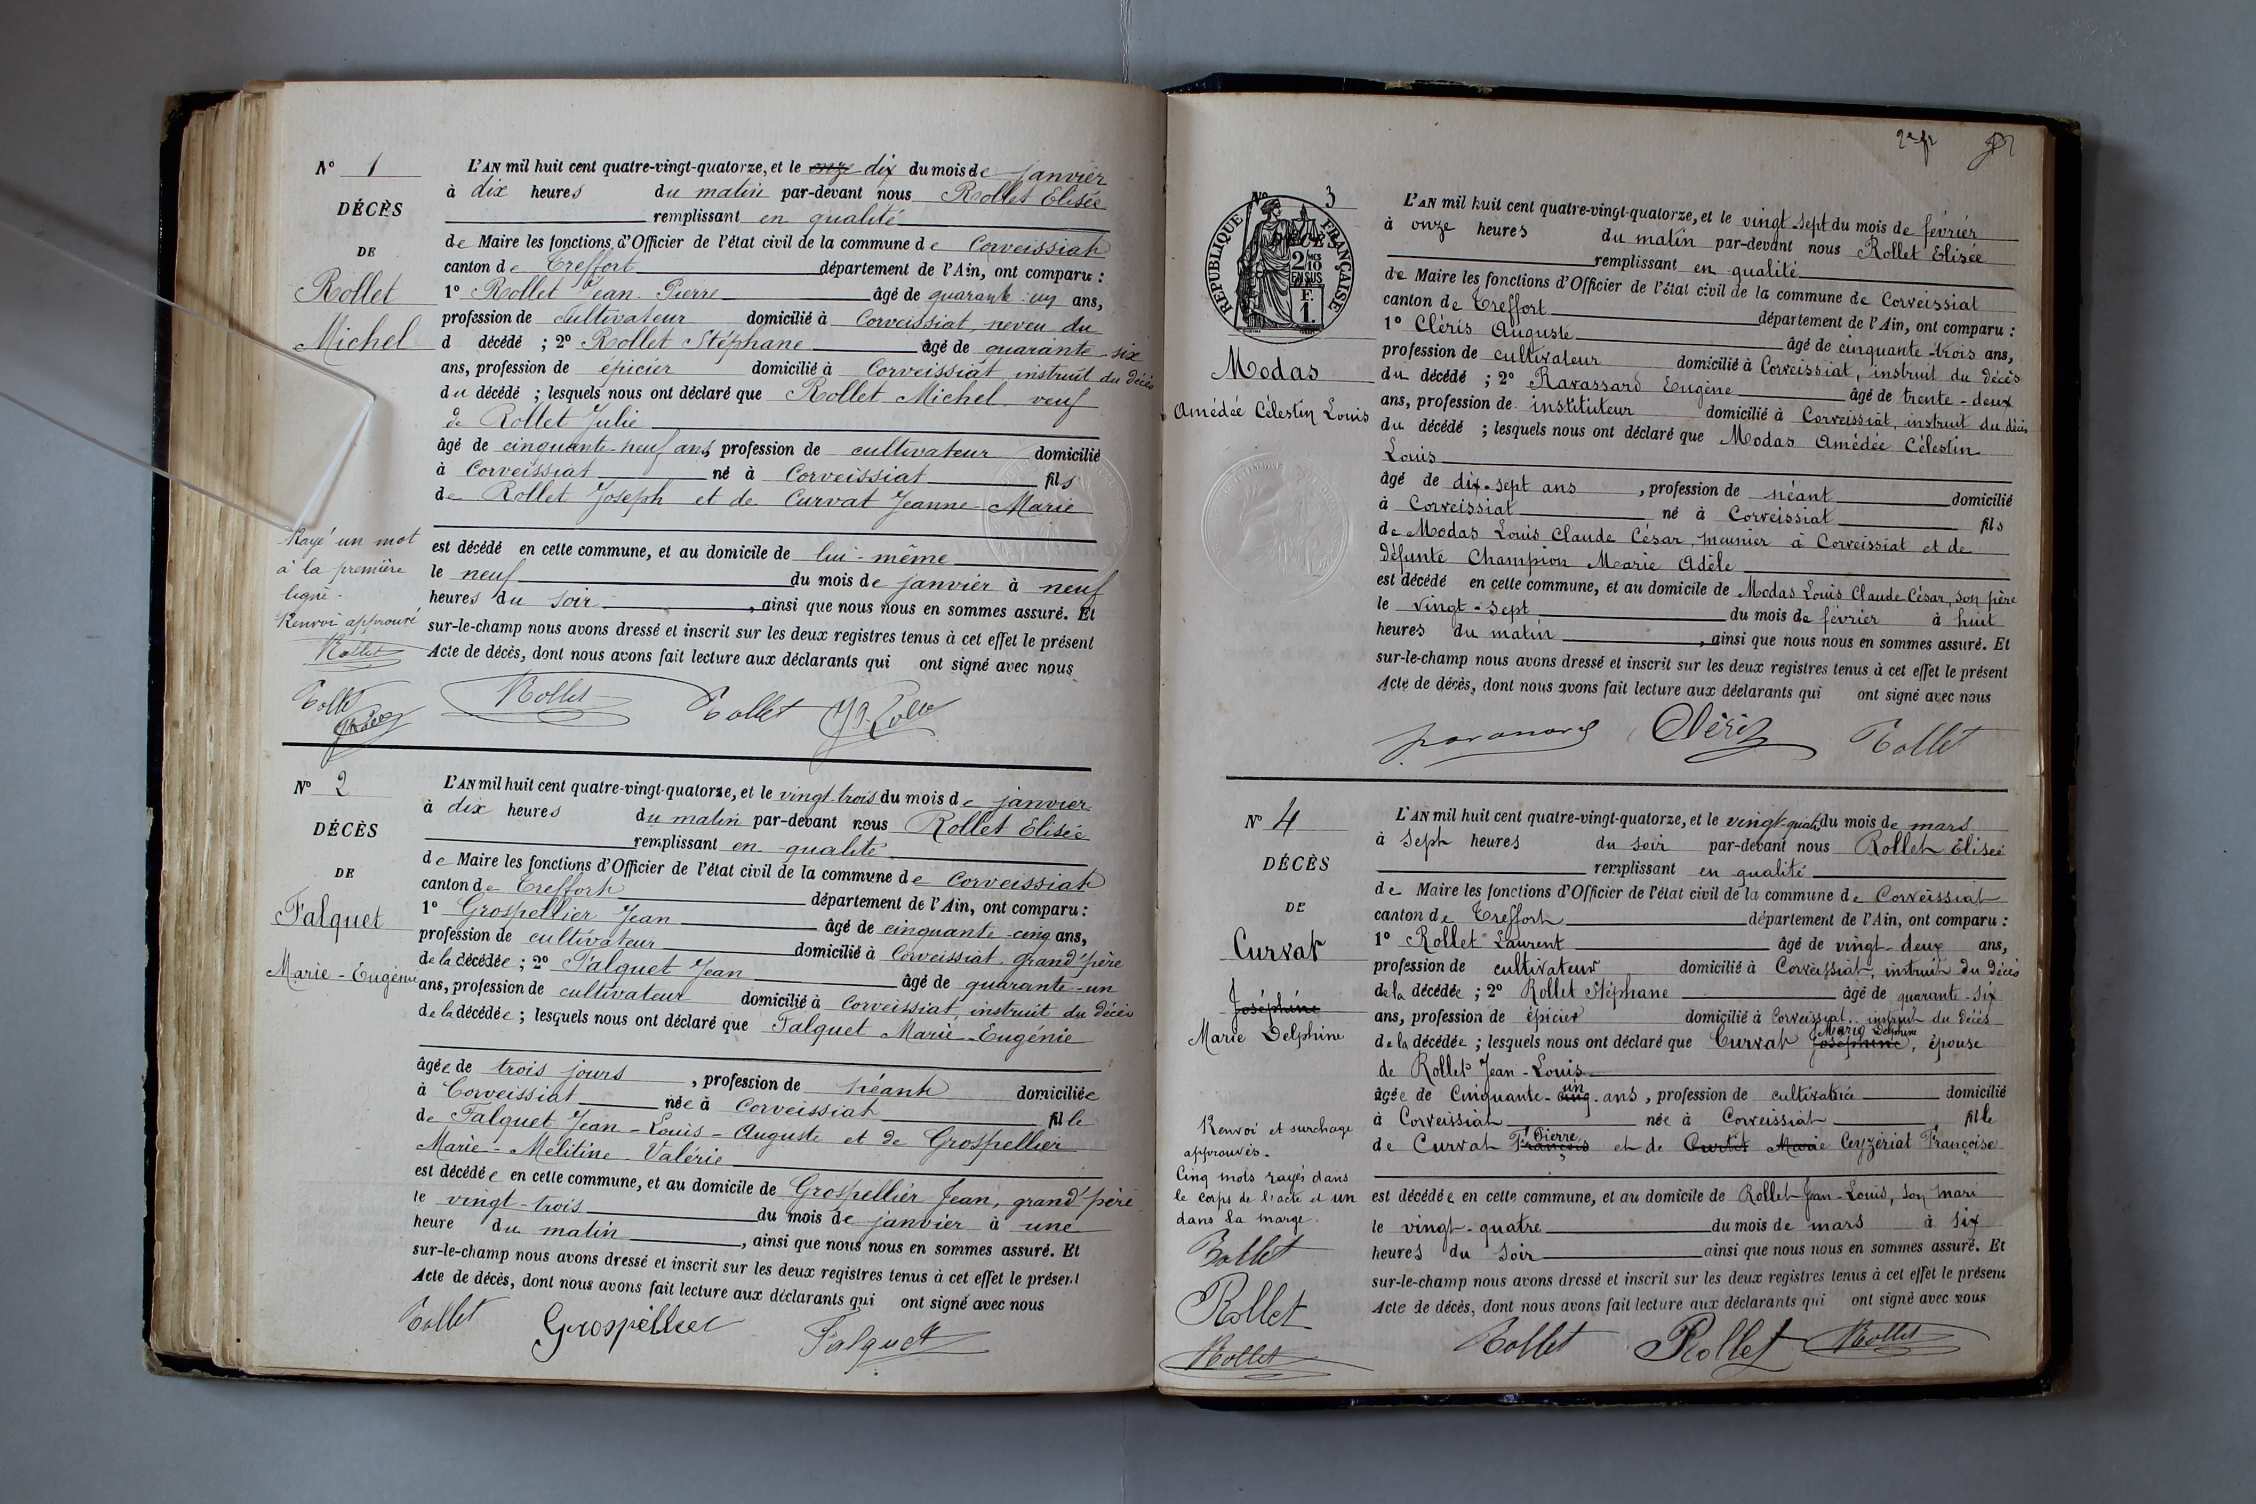 N° 1
DÉCÈS
DE
Rollet
Michel
L'AN mil huit cent quatre-vingt-quatorze, et le onze dix du mois de janvier
à dix heures du matin par-devant nous Rollet Elisée
remplissant en qualité
de Maire les fonctions d'Officier de l'état civil de la commune de Corveissiat
canton de Treffort département de l'Ain, ont comparu :
1° Rollet Jean Pierre âgé de quarante-un ans,
profession de cultivateur domicilié à Corveissiat, neveu du
d décédé ; 2° Rollet Stéphane âgé de quarante-six
ans, profession de épicier domicilié à Corveissiat, instruit du décès
du décédé ; lesquels nous ont déclaré que Rollet Michel veuf
de Rollet Julie
âgé de cinquante-neuf ans, profession de cultivateur domicilié
à Corveissiat né à Corveissiat fils
de Rollet Joseph et de Curvat Jeanne-Marie
est décédé en cette commune, et au domicile de lui-même
le neuf du mois de janvier à neuf
heures du soir, ainsi que nous nous en sommes assuré. Et
sur-le-champ nous avons dressé et inscrit sur les deux registres tenus à cet effet le présent
Acte de décès, dont nous avons fait lecture aux déclarants qui ont signé avec nous
Rayé un mot
à la première
ligne.
Renvoi approuvé
Rollet
Rollet
Rollet Rollet JP. Rollet
N° 2
DÉCÈS
DE
Falquet
Marie-Eugénie
L'AN mil huit cent quatre-vingt-quatorze, et le vingt-trois du mois de janvier
à dix heures du matin par-devant nous Rollet Elisée
remplissant en qualité
de Maire les fonctions d'Officier de l'état civil de la commune de Corveissiat
canton de Treffort département de l'Ain, ont comparu :
1° Grospellier Jean âgé de cinquante-cinq ans,
profession de cultivateur domicilié à Corveissiat, grand'père
de la décédée ; 2° Falquet Jean âgé de quarante-un
ans, profession de cultivateur domicilié à Corveissiat, instruit du décès
de la décédée ; lesquels nous ont déclaré que Falquet Marie-Eugénie
âgée de trois jours, profession de néant domiciliée
à Corveissiat née à Corveissiat fille
de Falquet Jean-Louis-Auguste et de Grospellier
Marie-Mélitine-Valérie
est décédée en cette commune, et au domicile de Grospellier Jean, grand'père
le vingt-trois du mois de janvier à une
heure du matin, ainsi que nous nous en sommes assuré. Et
sur-le-champ nous avons dressé et inscrit sur les deux registres tenus à cet effet le présent
Acte de décès, dont nous avons fait lecture aux déclarants qui ont signé avec nous
Rollet Grospellier Falquet
N° 3
RÉPUBLIQUE FRANÇAISE
2/10 MES
EN SUS
F.
1.
Modas
Amédée Célestin Louis
L'AN mil huit cent quatre-vingt-quatorze, et le vingt-sept du mois de février
à onze heures du matin par-devant nous Rollet Elisée
remplissant en qualité
de Maire les fonctions d'Officier de l'état civil de la commune de Corveissiat
canton de Treffort département de l'Ain, ont comparu :
1° Cléris Auguste âgé de cinquante-trois ans,
profession de cultivateur domicilié à Corveissiat, instruit du décès
du décédé ; 2° Ravassard Eugène âgé de trente-deux
ans, profession de instituteur domicilié à Corveissiat, instruit du décès
du décédé ; lesquels nous ont déclaré que Modas Amédée Célestin
Louis
âgé de dix-sept ans, profession de néant domicilié
à Corveissiat né à Corveissiat fils
de Modas Louis Claude César, meunier à Corveissiat et de
défunte Champion Marie Adèle
est décédé en cette commune, et au domicile de Modas Louis Claude César, son père
le vingt-sept du mois de février à huit
heures du matin, ainsi que nous nous en sommes assuré. Et
sur-le-champ nous avons dressé et inscrit sur les deux registres tenus à cet effet le présent
Acte de décès, dont nous avons fait lecture aux déclarants qui ont signé avec nous
Rollet
N° 4
DÉCÈS
DE
Curvat
Joséphine
Marie Delphine
L'AN mil huit cent quatre-vingt-quatorze, et le vingt-quatre du mois de mars
à sept heures du soir par-devant nous Rollet Elisée
remplissant en qualité
de Maire les fonctions d'Officier de l'état civil de la commune de Corveissiat
canton de Treffort département de l'Ain, ont comparu :
1° Rollet Laurent âgé de vingt-deux ans,
profession de cultivateur domicilié à Corveissiat, instruit du décès
de la décédée ; 2° Rollet Stéphane âgé de quarante-six
ans, profession de épicier domicilié à Corveissiat, instruit du décès
Marie Delphine
de la décédée ; lesquels nous ont déclaré que Curvat Joséphine, épouse
de Rollet Jean-Louis
un
âgée de Cinquante-cinq-ans, profession de cultivatrice domicilié
à Corveissiat née à Corveissiat fille
Pierre
de Curvat François et de Curtet Marie Ceyzériat Françoise
est décédée en cette commune, et au domicile de Rollet Jean-Louis, son mari
le vingt-quatre du mois de mars à six
heures du soir ainsi que nous nous en sommes assuré. Et
sur-le-champ nous avons dressé et inscrit sur les deux registres tenus à cet effet le présent
Acte de décès, dont nous avons fait lecture aux déclarants qui ont signé avec nous
Renvoi et surchage
approuvés.
Cinq mots rayés dans
le corps de l'acte et un
dans la marge.
Rollet
Rollet
Rollet
Rollet Rollet Rollet